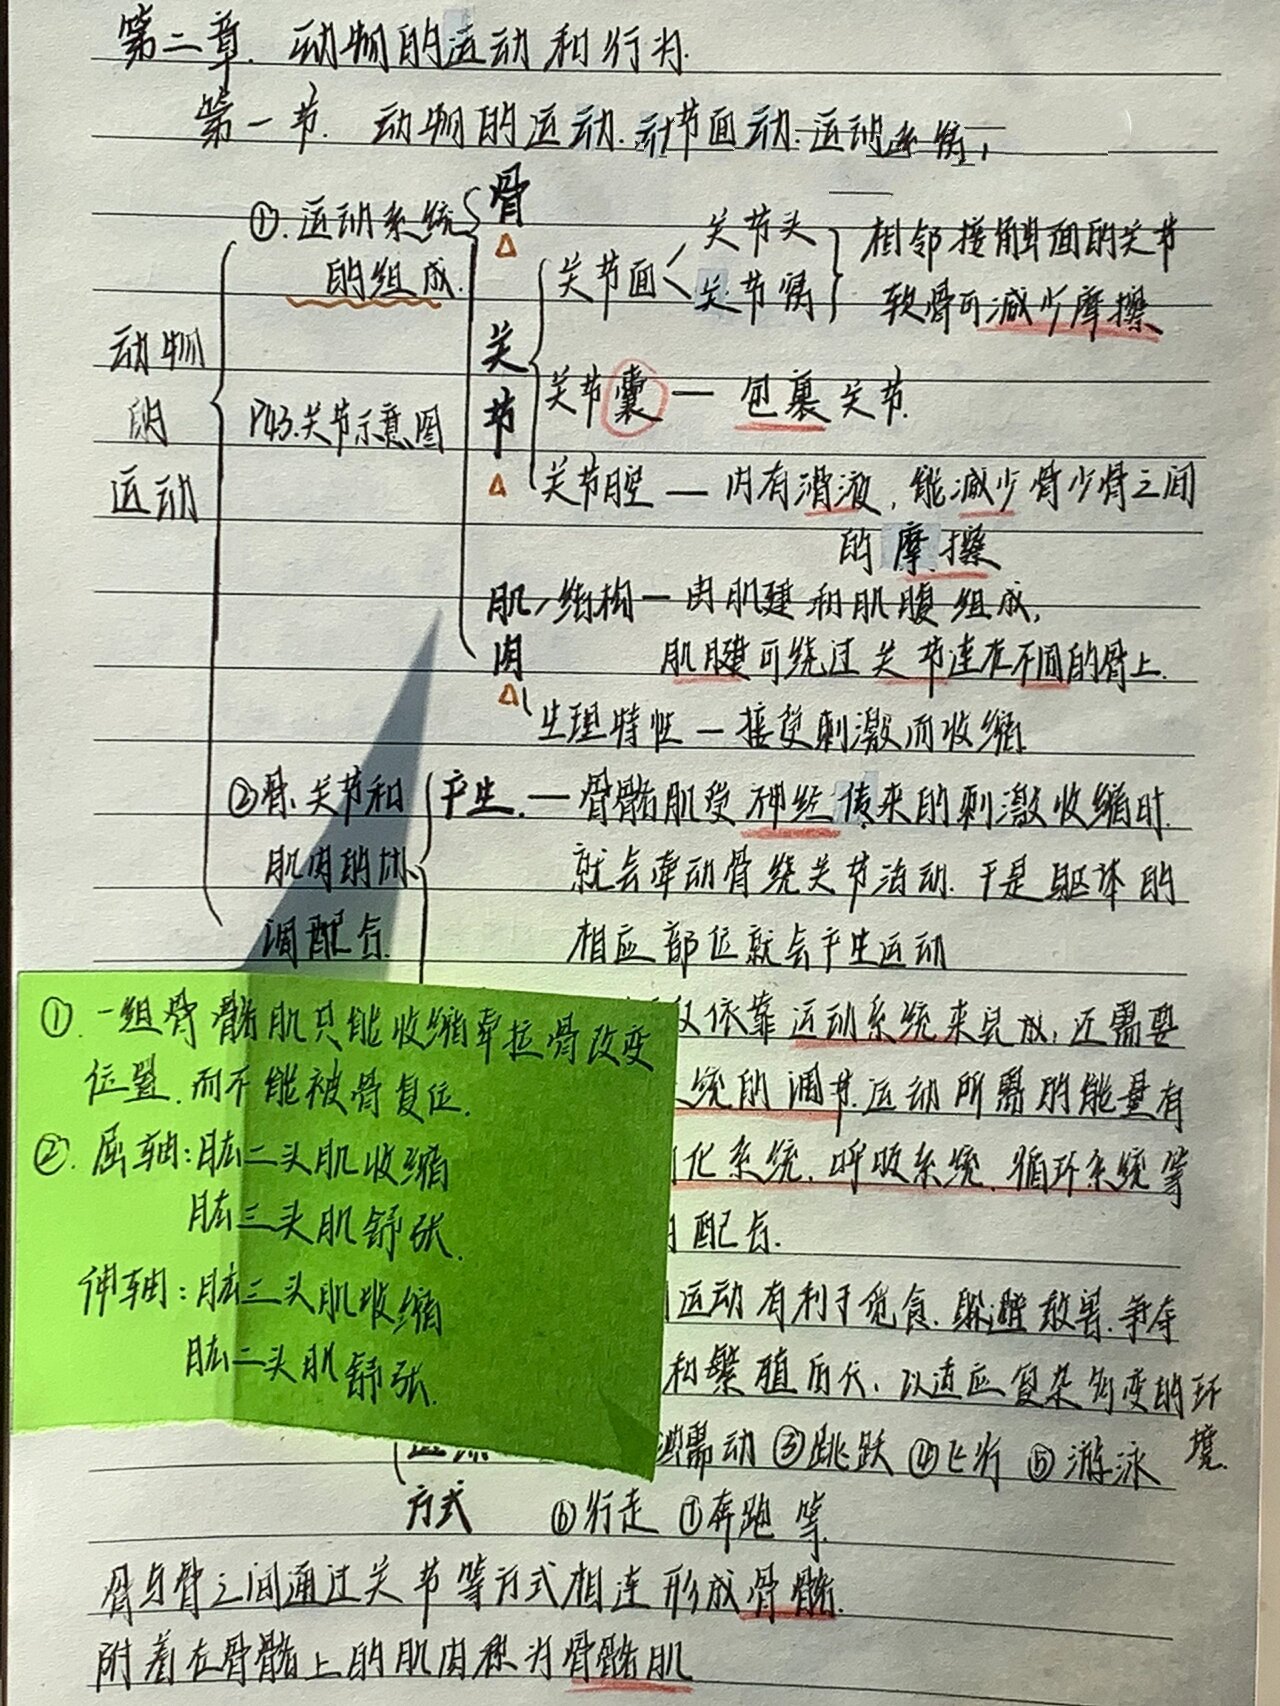 第二章. 动物的运动和行为.
第一节. 动物的运动. 动节面动: 运动系统,
①. 运动系统
的组成.
骨
关节面
关节头
关节窝
相邻接触面的关节
软骨可减少摩擦
动物
的
运动
P43.关节示意图
关
节
关节囊 — 包裹关节.
关节腔 — 内有滑液, 能减少骨少骨之间
的摩擦
肌
肉
结构 — 由肌腱和肌腹组成,
肌腱可绕过关节连在不同的骨上.
生理特性 — 接受刺激而收缩
②骨、关节和
肌肉的协
调配合.
产生. — 骨骼肌受神经传来的刺激收缩时.
就会牵动骨绕关节活动. 于是躯体的
相应部位就会产生运动
①. 一组骨骼肌只能收缩牵拉骨改变
位置. 而不能被骨复位.
②. 屈轴: 肱二头肌收缩
肱三头肌舒张.
伸轴: 肱三头肌收缩
肱二头肌舒张.
依靠运动系统来完成, 还需要
统的调节. 运动所需的能量有
化系统. 呼吸系统. 循环系统等
配合.
运动有利于觅食. 躲避敌害. 争夺
和繁殖后代, 以适应复杂多变的环
境.
蠕动 ③跳跃 ④飞行 ⑤游泳
方式 ⑥行走 ⑦奔跑等.
骨与骨之间通过关节等方式相连形成骨骼.
附着在骨骼上的肌肉称为骨骼肌